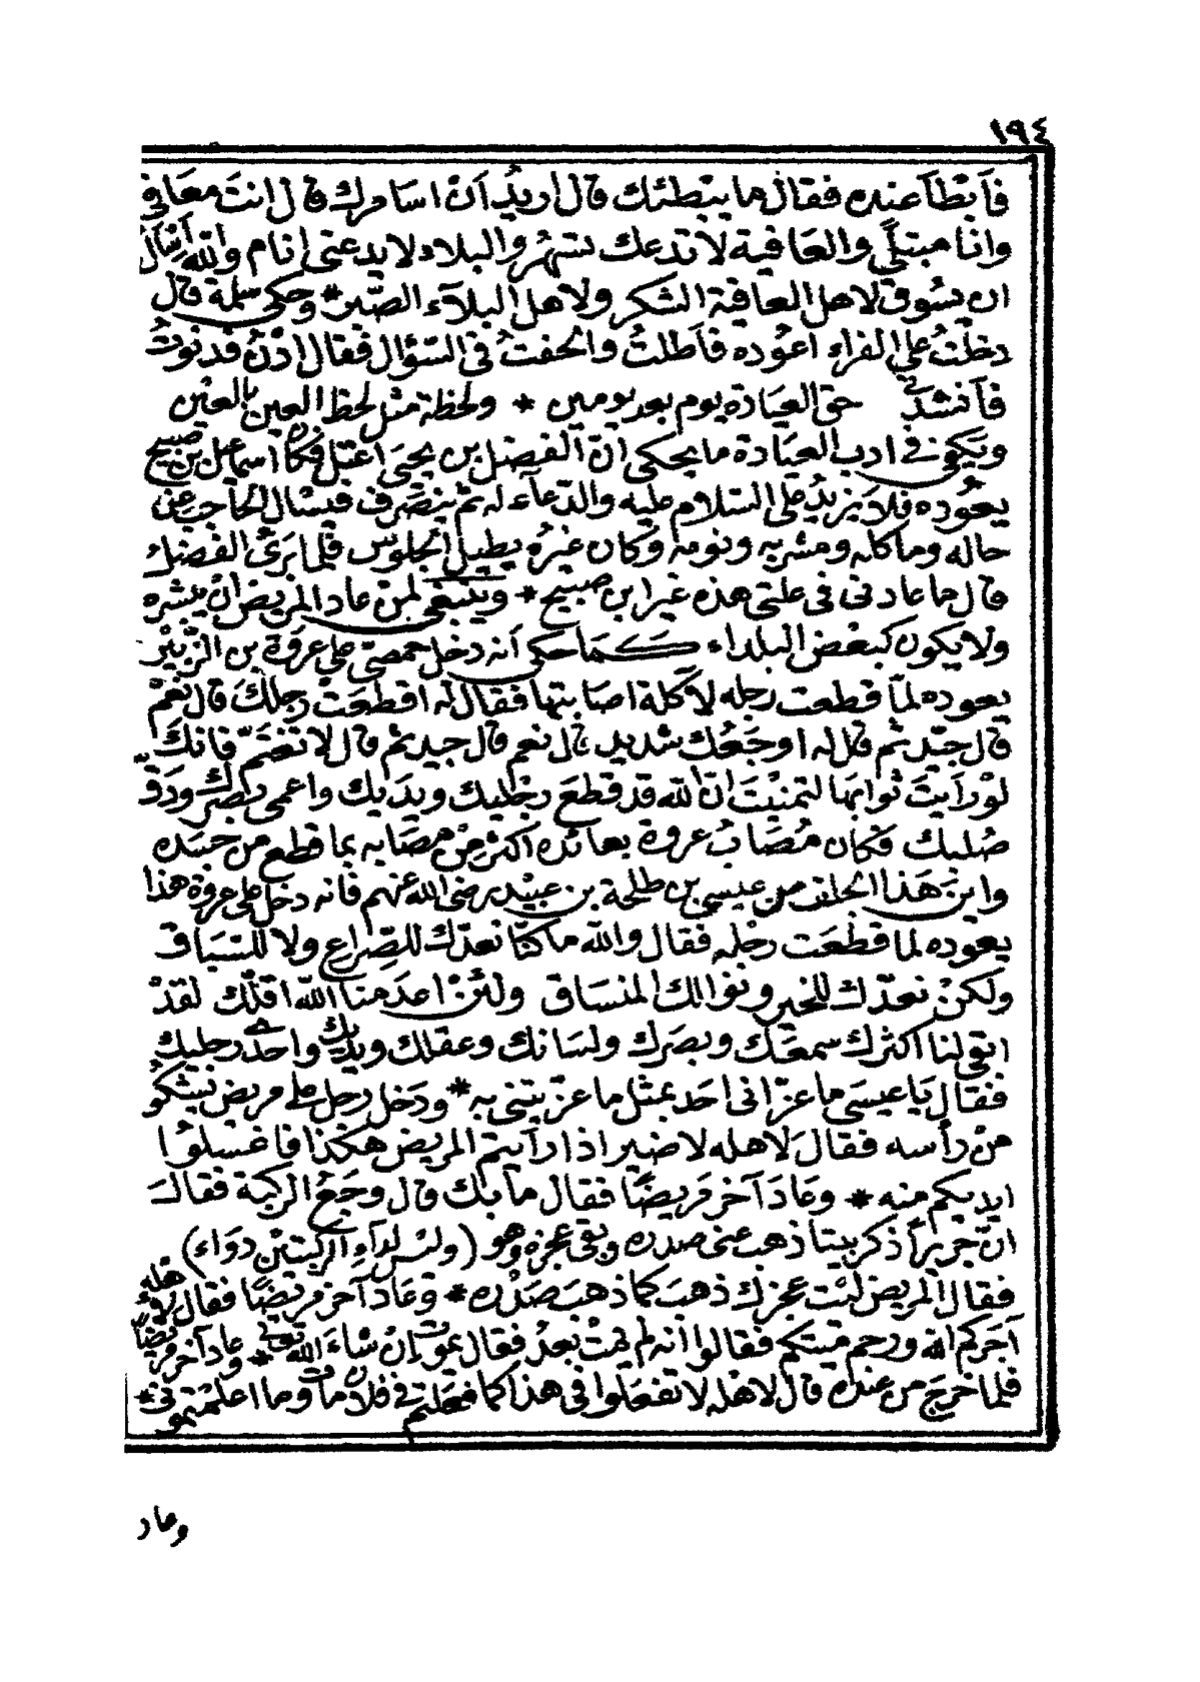 ١٩٤
فأبطأ عنده فقال ما يبطئك قال اريد أن اسامرك قال انت معافى
وانا مبتلى والعافية لا تدعك تسهر والبلاء لا يدعنى انام والله أسأل
ان يسوق لاهل العافية الشكر ولاهل البلاء الصبر * وحكى سلمة قال
دخلت على الفراء اعوده فأطلت والحفت فى السؤال فقال ادن فدنوت
فأنشدنى حق العيادة يوم بعد يومين * ولحظة مثل لحظ العين بالعين
ويكفى فى ادب العيادة ما يحكى ان الفضل بن يحيى اعتل فكان اسماعيل بن صبيح
يعوده فلا يزيد على السلام عليه والدعاء له ثم ينصرف فيسال الحاجب عن
حاله وماكله ومشربه ونومه وكان غيره يطيل الجلوس فلما برئ الفضل
قال ما عادنى فى علتى هذه غير ابن صبيح * وينبغى لمن عاد المريض ان يبشره
ولا يكون كبعض البلداء كما حكى أنه دخل حمصى على عروة بن الزبير
يعوده لما قطعت رجله لأكلة اصابتها فقال له اقطعت رجلك قال نعم
قال جيد ثم قال له اوجعك شديد قال نعم قال جيد ثم قال لا تغتم فانك
لو رأيت ثوابها لتمنيت ان الله قد قطع رجليك ويديك واعمى بصرك ودق
صلبك فكان مصاب عروة بعائده اكثر من مصابه بما قطع من جسده
واين هذا الجلف من عيسى بن طلحة بن عبيد رضى الله عنهم فانه دخل على عروة هذا
يعوده لما قطعت رجله فقال والله ما كنا نعدك للصراع ولا للسباق
ولكن نعدك للخير ونوالك المنساق ولئن اعدمنا الله اقلك لقد
ابقى لنا اكثرك سمعك وبصرك ولسانك وعقلك ويديك واحدى رجليك
فقال يا عيسى ما عزانى احد بمثل ما عزيتنى به * ودخل رجل على مريض يشكو
من رأسه فقال لاهله لا ضير اذا رأيتم المريض هكذا فاغسلوا
ايديكم منه * وعاد آخر مريضا فقال ما بك قال وجع الركبة فقال
ان جريرا ذكر بيتا ذهب عنى صدره وبقى عجزه وهو (وليس لداء الركبتين دواء)
فقال المريض ليت عجزك ذهب كما ذهب صدره * وعاد آخر مريضا فقال لاهله
آجركم الله ورحم ميتكم فقالوا أنه لم يمت بعد فقال يموت إن شاء الله تعالى * وعاد آخر مريضا
فلما خرج من عنده قال لاهله لا تفعلوا فى هذا كما فعلتم فى فلان مات وما اعلمتمونى *
وعاد